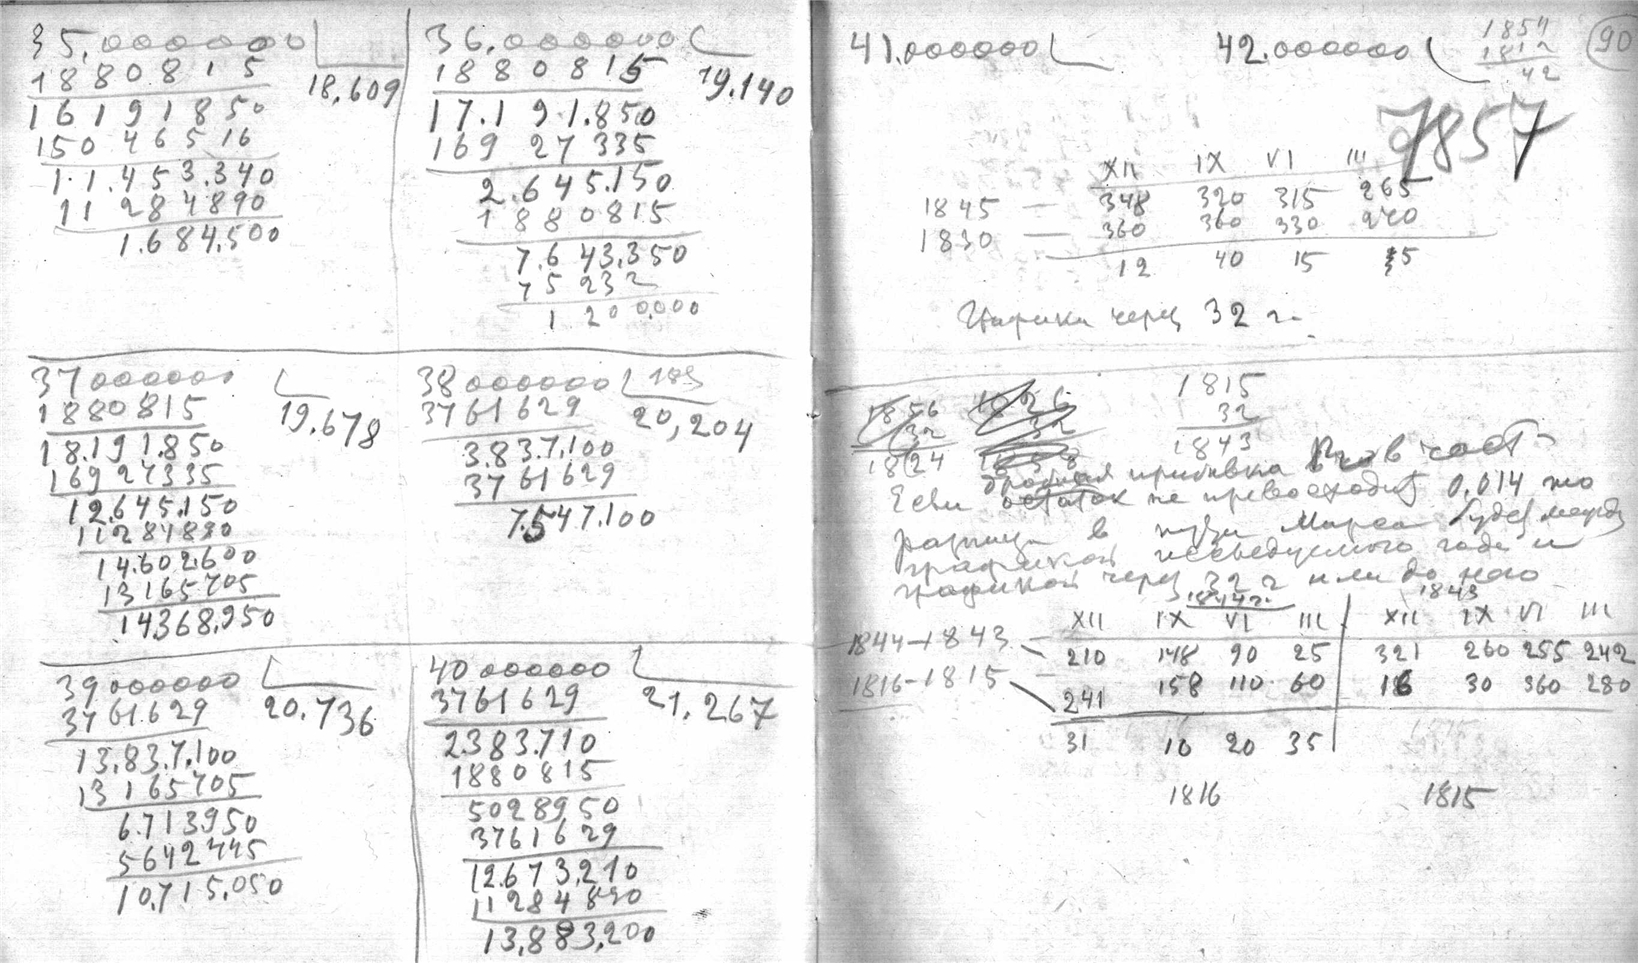 35.000000
1880815
18,609
16191850
15046516
11.453.340
11284890
1.684.500
36.000000
1880815
19.140
17.191.850
16927335
2.645.150
1880815
7.643.350
75232
1200.000
37000000
1880815
19,678
18.191.850
16927335
12.645.150
11284890
14.602.600
13165705
14368.950
38000000
3761629
20,204
3.837.100
3761629
7.547.100
39000000
3761629
20,736
13.837.100
13165705
6.713950
5642445
10.715.050
40000000
3761629
21,267
2383.710
1880815
5028950
3761629
12.673.210
11284890
13.883.200
41.000000
42.000000
1854
1812
42
90
1857
XII IX VI III
1845 — 348 320 315 265
1830 — 360 360 330 270
12 40 15 5
Графики через 32 г.
1856
32
1824
1826
32
1858
1815
32
1843
дробная прибавка в част
Если остаток не превосходит 0,014 то
разница в пути Марса будет между
графикой исследуемого года и
графикой через 32 г или до него
1844 г. 1843
XII IX VI III XII IX VI III
1844—1843 — 210 148 90 25 321 260 255 242
1816—1815 241 158 110 60 16 30 360 280
31 10 20 35
1816 1815